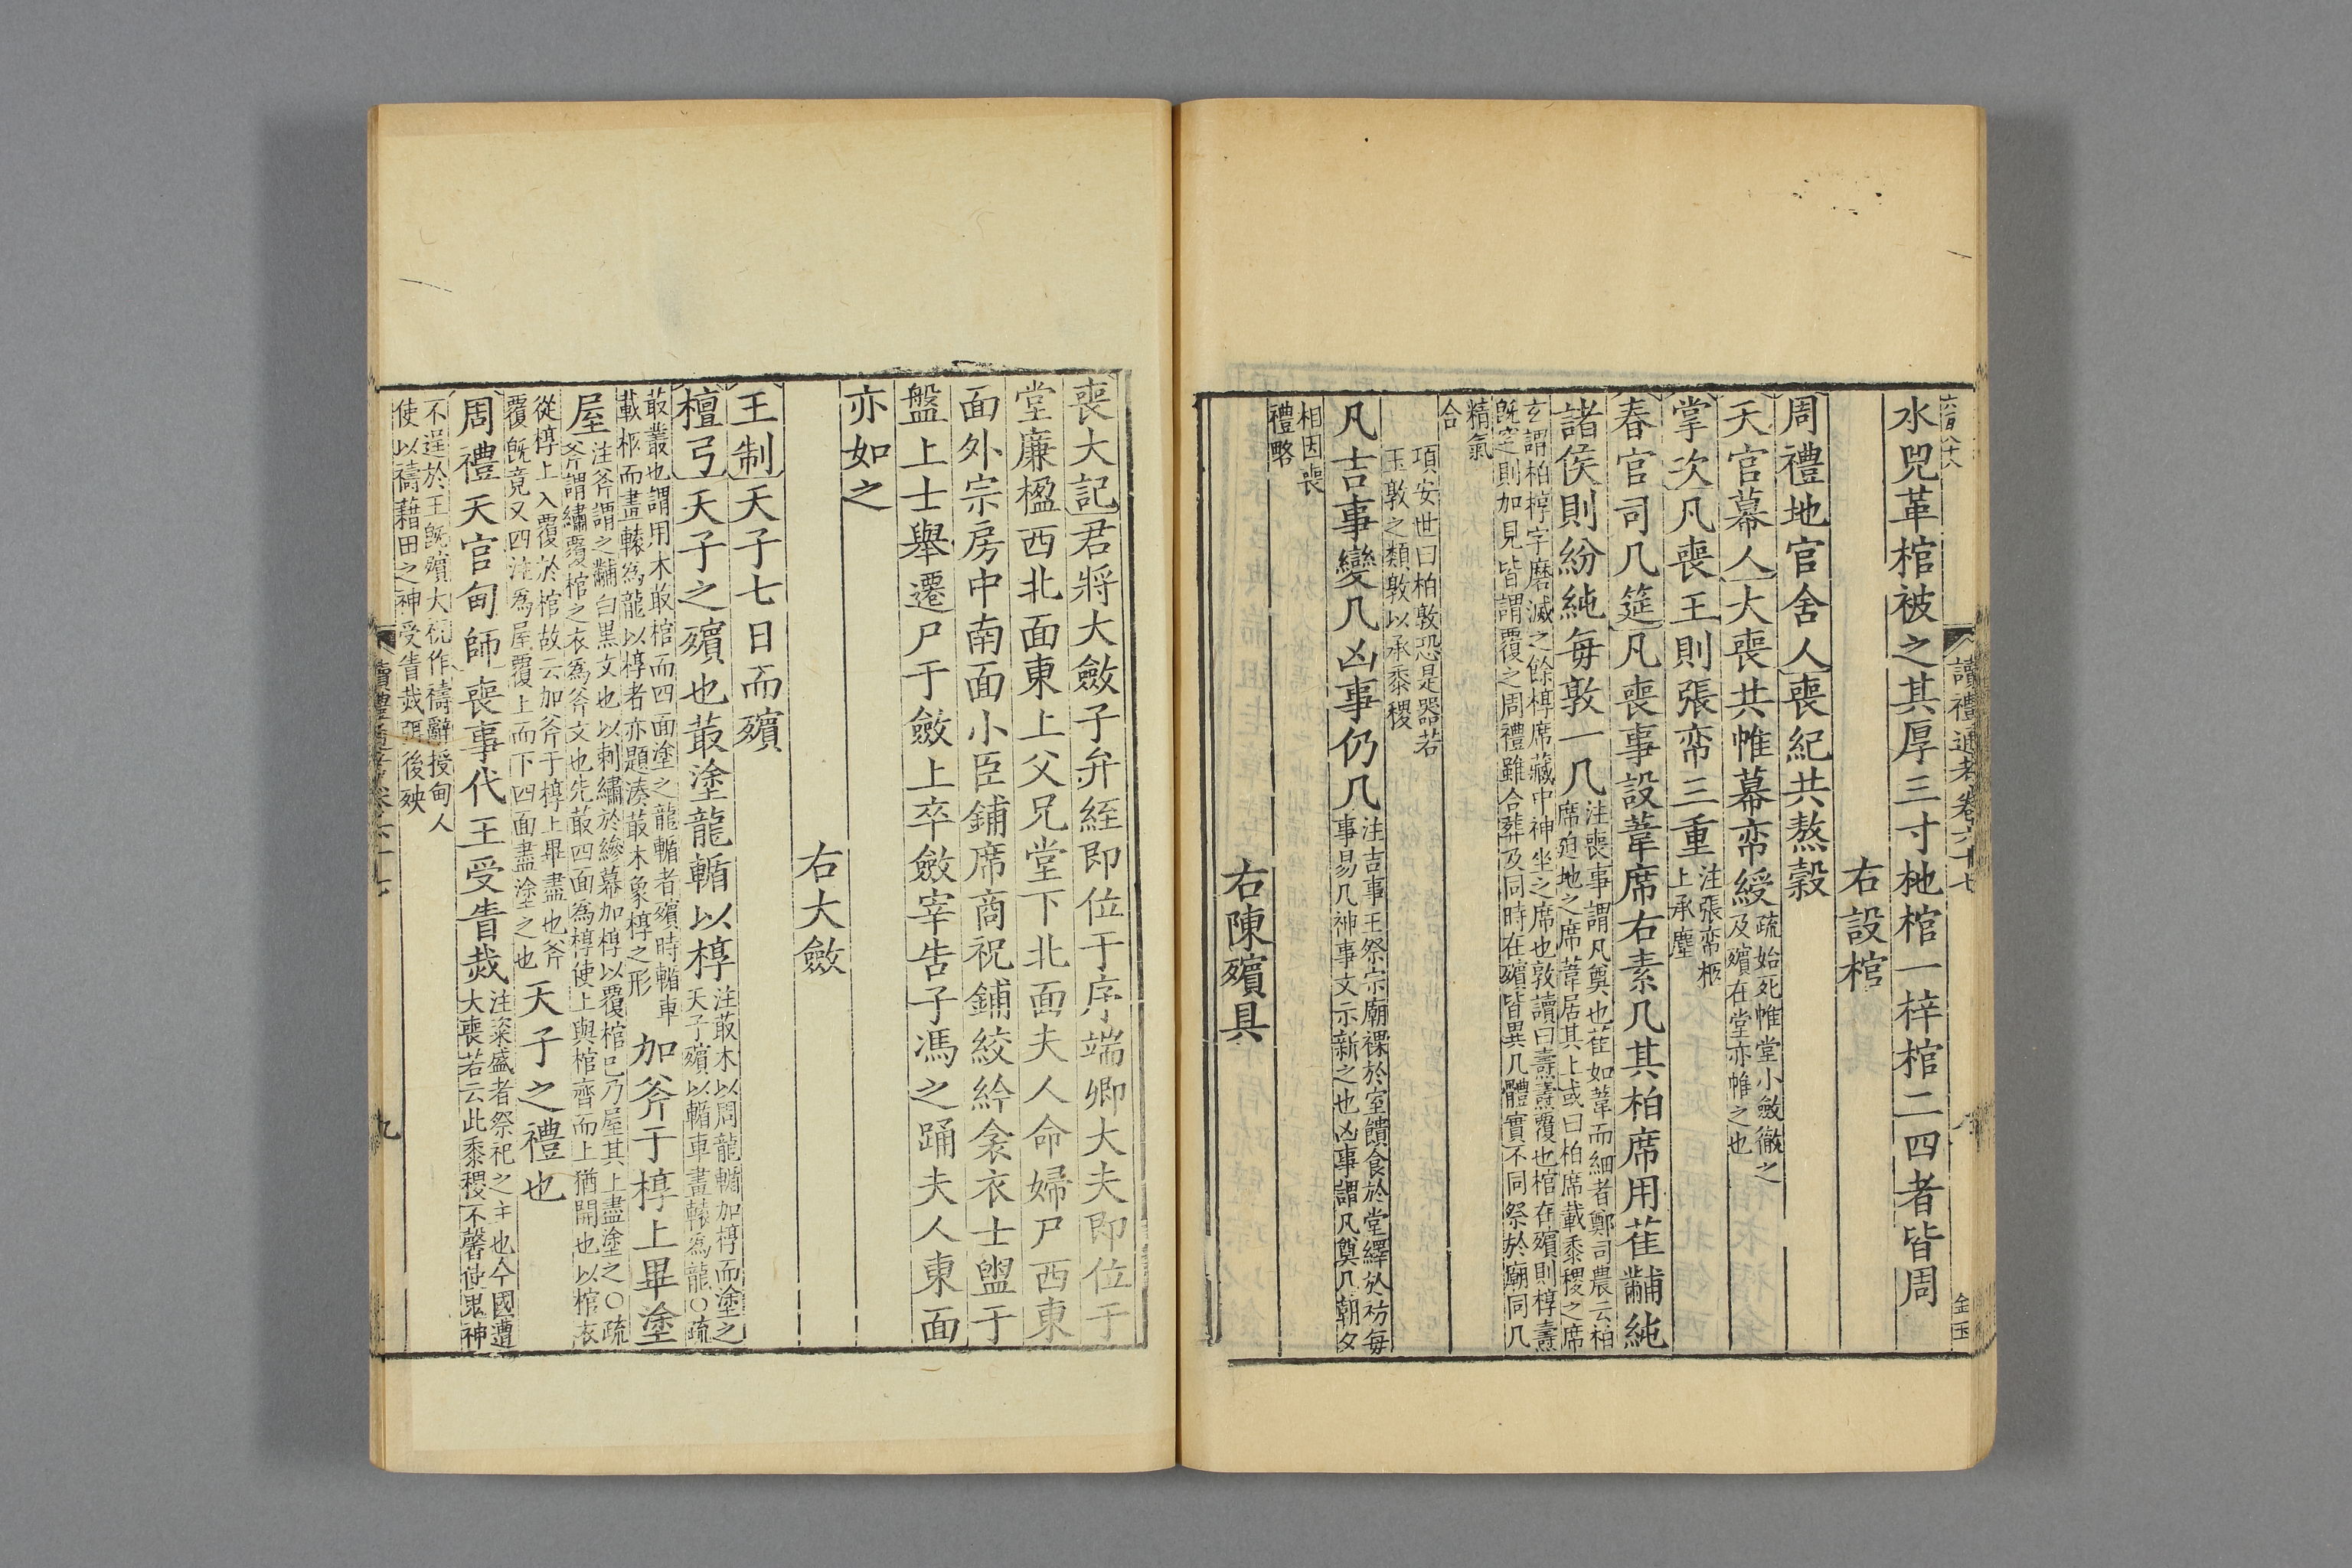 六百八十八
讀禮通考卷六十七
八
金玉
水兕革棺被之其厚三寸杝棺一梓棺二四者皆周
右設棺
周禮地官舍人喪紀共熬穀
天官幕人大喪共帷幕帟綬疏始死帷堂小斂徹之
及殯在堂亦帷之也
掌次凡喪王則張帟三重注張帟柩
上承塵
春官司几筵凡喪事設葦席右素几其柏席用萑黼純
諸侯則紛純每敦一几注喪事謂凡奠也萑如葦而細者鄭司農云柏
席迫地之席葦居其上或曰柏席載黍稷之席
玄謂柏椁字磨滅之餘椁席藏中神坐之席也敦讀曰燾燾覆也棺在殯則椁燾
既窆則加見皆謂覆之周禮雖合葬及同時在殯皆異几體實不同祭於廟同几
精氣
合
項安世曰柏敦恐是器若
玉敦之類敦以承黍稷
凡吉事變几凶事仍几注吉事王祭宗廟祼於室饋食於堂繹於祊每
事易几神事文示新之也凶事謂凡奠几朝夕
相因喪
禮略
右陳殯具
喪大記君將大斂子弁絰即位于序端卿大夫即位于
堂廉楹西北面東上父兄堂下北面夫人命婦尸西東
面外宗房中南面小臣鋪席商祝鋪絞紟衾衣士盥于
盤上士舉遷尸于斂上卒斂宰告子馮之踊夫人東面
亦如之
右大斂
王制天子七日而殯
檀弓天子之殯也菆塗龍輴以椁注菆木以周龍輴加椁而塗之
天子殯以輴車畫轅為龍○疏
菆叢也謂用木菆棺而四面塗之龍輴者殯時輴車
載柩而畫轅為龍以椁者亦題湊菆木象椁之形加斧于椁上畢塗
屋注斧謂之黼白黑文也以刺繡於縿幕加椁以覆棺已乃屋其上盡塗之○疏
斧謂繡覆棺之衣為斧文也先菆四面為椁使上與棺齊而上猶開也以棺衣
從椁上入覆於棺故云加斧于椁上畢盡也斧
覆既竟又四注為屋覆上而下四面盡塗之也天子之禮也
周禮天官甸師喪事代王受眚烖注粢盛者祭祀之主也今國遭
大喪若云此黍稷不馨使鬼神
不逞於王既殯大祝作禱辭授甸人
使以禱藉田之神受眚烖弭後殃
九